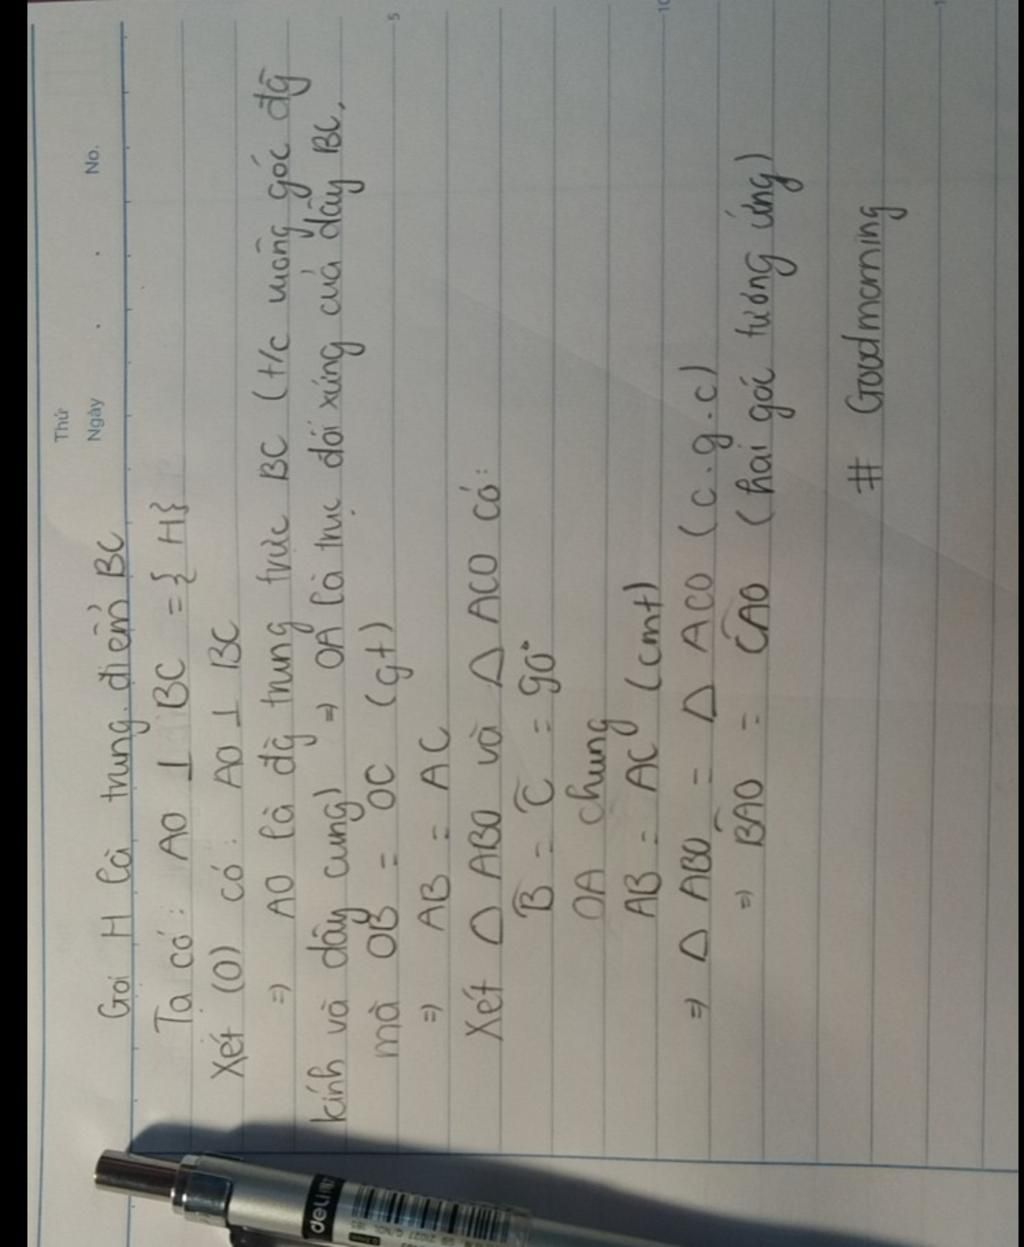 Thứ
Ngày . . No.
Gọi H là trung điểm BC
Ta có: AO ⊥ BC = {H}
Xét (O) có: AO ⊥ BC
⇒ AO là đg trung trực BC (t/c vuông góc đg
kính và dây cung) ⇒ OA là trục đối xứng của dây BC,
mà OB = OC (gt)
5
⇒ AB = AC
Xét Δ ABO và Δ ACO có:
B̂ = Ĉ = 90°
OA chung
AB = AC (cmt)
10
⇒ Δ ABO = Δ ACO (c.g.c)
⇒ BÂO = CÂO (hai góc tương ứng)
# Goodmorning
deli